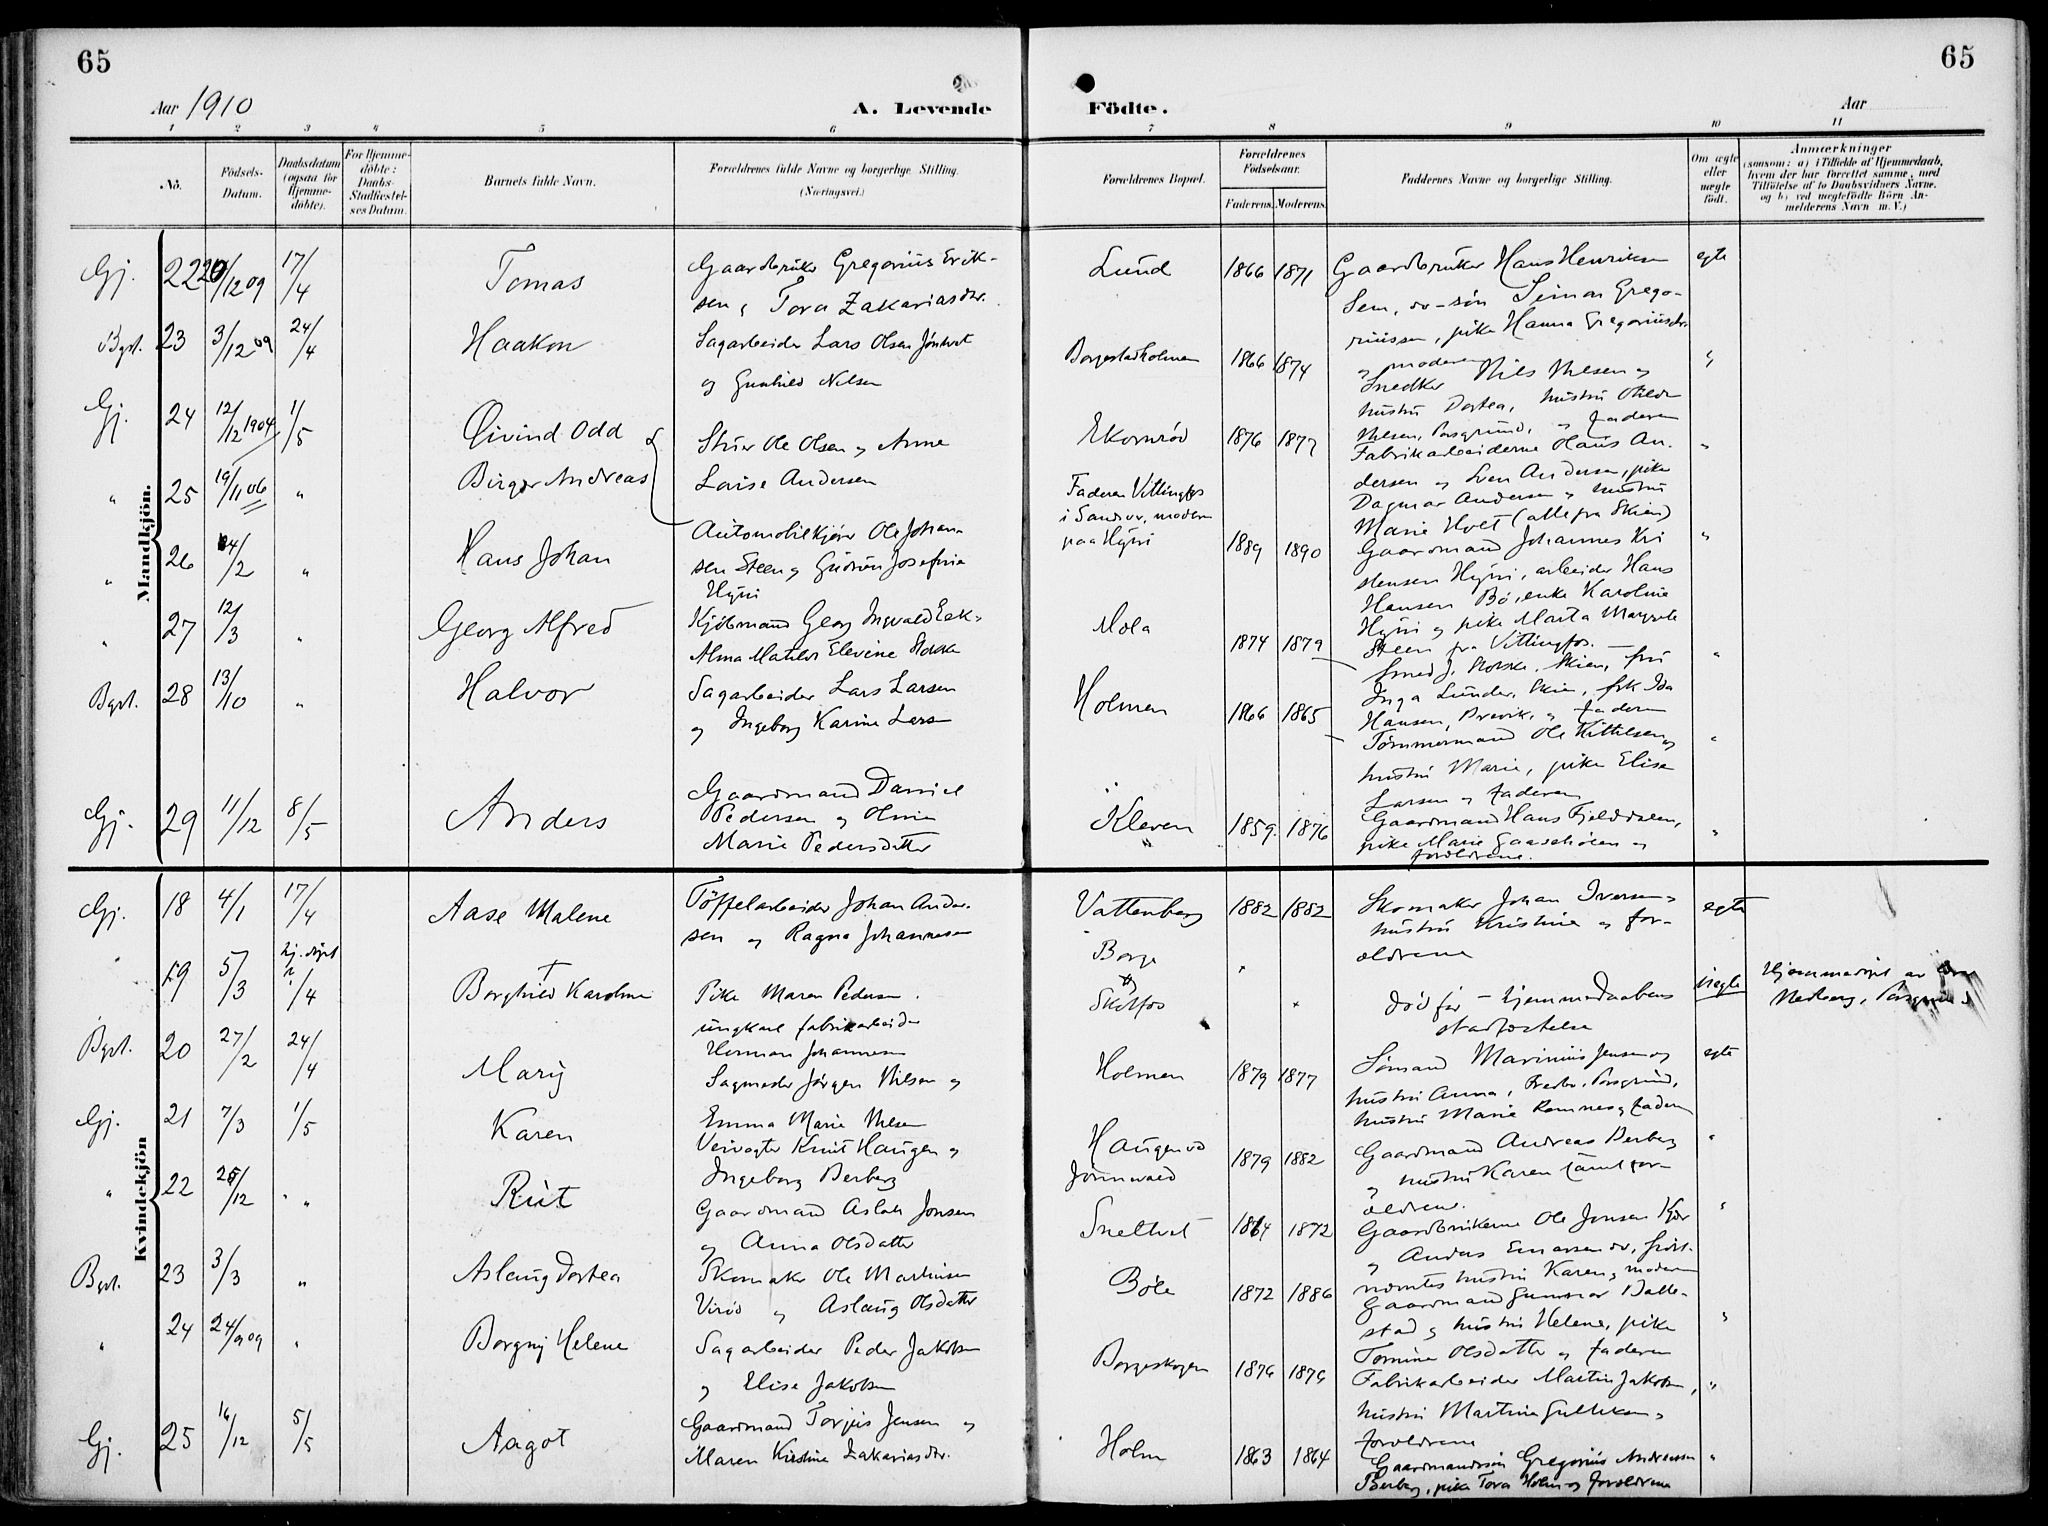 65
65
Aar 1910
A. Levende
Födte.
Aar
1 2 3 4 5 6 7 8 9 10 11
No.
Födsels-Datum.
Daabsdatum (ogsaa for Hjemme-döbte).
For Hjemme-döbte: Daabs-Stadfæstel-ses Datum.
Barnets fulde Navn.
Forældrenes fulde Navne og borgerlige Stilling. (Næringsvei.)
Forældrenes Bopæl.
Forældrenes Födselsaar.
Faderens. Moderens.
Faddernes Navne og borgerlige Stilling.
Om ægte eller uægte födt.
Anmærkninger
(saasom: a) i Tilfælde af Hjemmedaab,
hvem der har forrettet samme, med
Tilföielse af to Daabsvidners Navne.
og b) ved uægtefödte Börn An-
melderens Navn m. V.)
Mandkjön.
Gj. 22 /12 09 17/4 Tomas
Gaardbruker Gregorius Erik-
sen, Tora Zakariasdtr.
Lund 1866 1871
Gaardbruker Hans Henriksen
Sem, do-søn Simon Grego-
riussen, pike Hanna Gregoriusdtr.
og moderen
egte
Bgst. 23 3/12 09 24/4 Haakon
Sagarbeider Lars Olsen Jønholt
og Gunhild Nilsen
Borgestadholmen 1866 1874
Snedker Nils Nilsen og
hustru Dortea, hustru
Nilsen, Porsgrund, og faderen
"
Gj. 24 12/12 1904 1/5 Øivind Odd
" 25 19/11 06 " Birger Andreas
Stuer Ole Olsen og Anne
Lovise Andersen
Ekornrød 1876 1877
Fabrikarbeiderne Hans An-
dersen og Sven Andersen, pike
Dagmar Andersen og hustru
Marie Holt (alle fra Skien)
"
" 26 /2 " Hans Johan
Automobilkjører Ole Johan-
sen Steen og Gudrun Josefine
Hyni
Faderen Vittingfos
i Sandsv., moderen
paa Hyni 1889 1890
Gaardmand Johannes Kri
stensen Hyni, arbeider Hans
Hansen Bø, enke Karoline
Hyni og pike Marta Margrete
Steen fra Vittingfos.
"
" 27 12/3 " Georg Alfred
Kjøbmand Georg Ingvald Eek-
Alma Matilde Elevine Stokke
Mæla 1874 1879
Smed J. Stokke, Skien, fru
Inga Lunde, Skien, frk Ida
Hansen, Brevik, og faderen
"
Bgst. 28 13/10 " Halvor
Sagarbeider Lars Larsen
og Ingeborg Karine Lars
Holmen 1866 1865
Tømmermand Ole Kittilsen og
hustru Marie, pike Elise
Larsen og faderen
"
Gj. 29 11/12 8/5 Anders
Gaardmand Daniel
Pedersen og Oline
Marie Pedersdatter
Kleven 1859 1876
Gaardmand Hans Fjelddalen,
pike Marie Gaasehølen og
foreldrene.
"
Kvindekjön
Gj. 18 4/1 17/4 Aase Malene
Tøffelarbeider Johan Ander-
sen og Ragna Johannesen
Vattenberg 1882 1882
Skomaker Johan Iversen,
hustru Kristine og for-
ældrene
egte
" 19 5/3 hj. døpt /4 Borghild Karoline †
Pike Maren Pedersen.
ungkarl fabrikarbeider
Herman Johannesen
Borge
og
Skotfos " "
død før hjemmedaabens
stadfæstelse
uegte
Hjemmedøpt av
Porsgrund
Bgst. 20 27/2 24/4 Mary
Sagmester Jørgen Nilsen og
Emma Marie Nilsen
Holmen 1879 1877
Sømand Marinius Jensen og
hustru Anna, Porsgrund,
hustru Marie Romnes og faderen
egte
Gj. 21 7/3 1/5 Karen
Veivogter Knut Haugen og
Ingeborg Berberg
Haugen vd
Jønnevald 1879 1882
Gaardmand Andreas Berberg
og hustru Karen samt for-
ældrene.
"
" 22 /12 " Rut
Gaardmand Aslak Jonsen
og Anna Olsdatter
Sneltvet 1864 1872
Gaardbrukerne Ole Jonsen
og Anders Einarsen do, først-
nævntes hustru Karen, moderen
"
Bgst. 23 3/3 " Aslaug Dortea
Skomaker Ole Martinsen
Virød og Aslaug Olsdatter
Bøle 1872 1886
Gaardmand Gunnar Balle-
stad og hustru Helene, pike
Tomine Olsdatter og faderen
"
" 24 24/9 09 " Borgny Helene
Sagarbeider Peder Jakobsen
og Elise Jakobsen
Borgeskogen 1876 1876
Fabrikarbeider Martin Jakobsen,
hustru Martine Gulliksen,
foreldrene
"
Gj. 25 16/12 5/5 Aagot
Gaardmand Torjus Jensen og
Maren Kirstine Zakariasdtr.
Holm 1863 1864
Gaardmandssøn Gregorius Andreassen
Berberg, pike Tora Holm og foreldrene
"